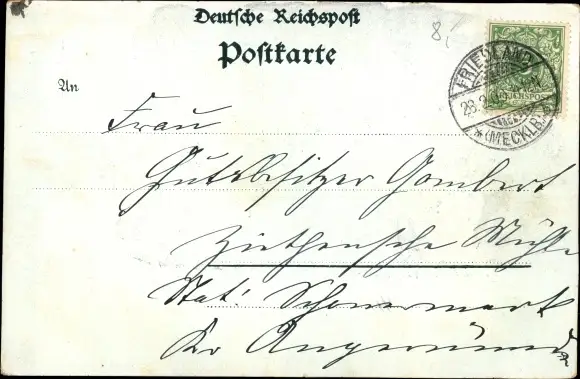 Deutsche Reichspost
Postkarte
8,
An
FRIEDLAND
(MECKLB.)
REICHSPOST
Frau
Gutsbesitzer Gombert
Ziethensche Mühle
Stat: Schönermark
Kr Angermünde